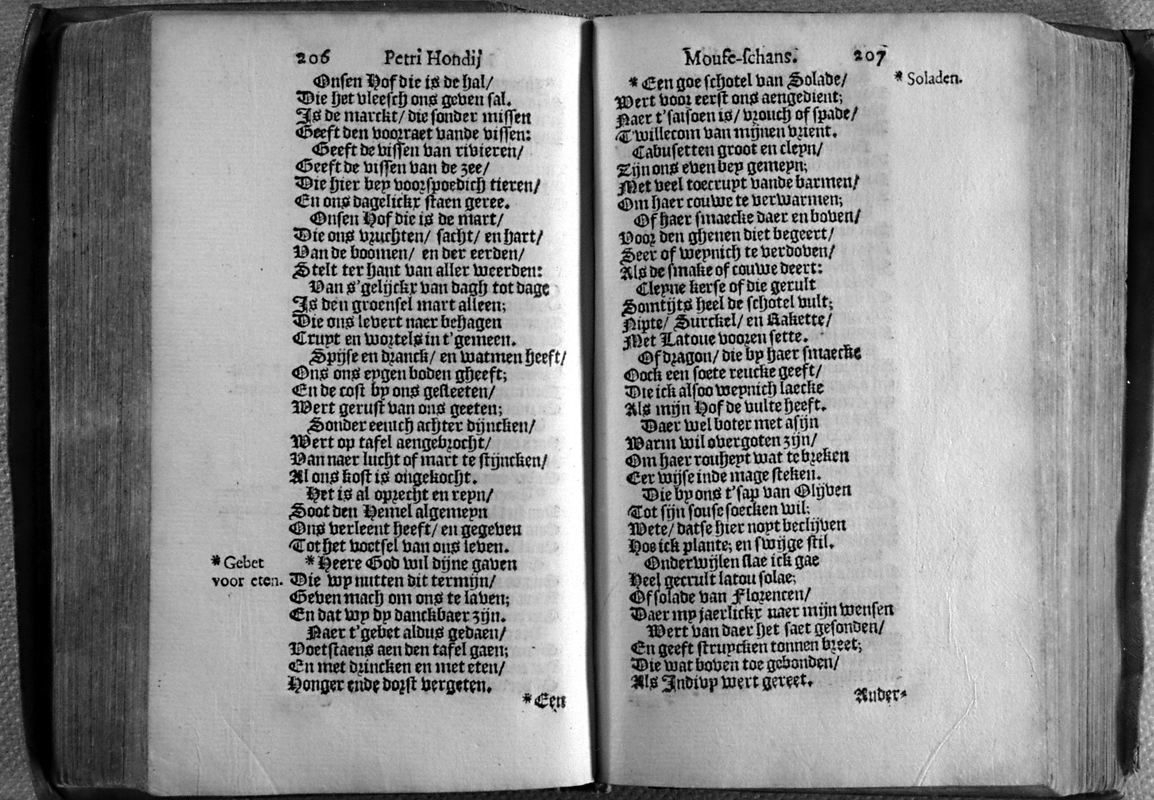 206 Petri Hondij
Onsen Hof die is de hal/
Die het vleesch ons geven sal.
Is de marckt/ die sonder missen
Geeft den voorraet vande vissen:
Geeft de vissen van rivieren/
Geeft de vissen van de zee/
Die hier bey voorspoedich tieren/
En ons dagelickx staen geree.
Onsen Hof die is de mart/
Die ons vruchten/ sacht/ en hart/
Van de boomen/ en der eerden/
Stelt ter hant van aller weerden:
Van s'gelijckx van dagh tot dage
Is den groensel mart alleen;
Die ons levert naer behagen
Cruyt en wortels in t'gemeen.
Spijse en dranck/ en watmen heeft/
Ons ons eygen boden gheeft;
En de cost by ons gesleeten/
Wert gerust van ons geeten;
Sonder eenich achter dijncken/
Wert op tafel aengebrocht/
Van naer lucht of mart te stijncken/
Al ons kost is ongekocht.
Het is al oprecht en reyn/
Soot den Hemel algemeyn
Ons verleent heeft/ en gegeven
Tot het voetsel van ons leven.
* Gebet
voor eten.
*Heere God wil dijne gaven
Die wy nutten dit termijn/
Geven mach om ons te laven;
En dat wy dy danckbaer zijn.
Naer t'gebet aldus gedaen/
Voetstaens aen den tafel gaen;
En met drincken en met eten/
Honger ende dorst vergeten.
*Een
Mouse-schans. 207
* Een goe schotel van Solade/
Wert voor eerst ons aengedient;
Naer t'saisoen is/ vrouch of spade/
T'willecom van mijnen vrient.
* Soladen.
Cabusetten groot en cleyn/
Zijn ons even bey gemeyn;
Met veel toecruyt vande barmen/
Om haer couwe te verwarmen;
Of haer smaecke daer en boven/
Voor den ghenen diet begeert/
Seer of weynich te verdoven/
Als de smake of couwe deert:
Cleyne kerse of die gerult
Somtijts heel de schotel vult;
Nipte/ Surckel/ en Rakette/
Met Latoue vooren sette.
Of dragon/ die by haer smaecke
Oock een soete reucke geeft/
Die ick alsoo weynich laecke
Als mijn Hof de vulte heeft.
Daer wel boter met asijn
Warm wil overgoten zijn/
Om haer rouheyt wat te breken
Eer wijse inde mage steken.
Die by ons t'sap van Olijven
Tot sijn souse soecken wil;
Wete/ datse hier noyt beclijven
Hoe ick plante; en swijge stil.
Onderwijlen slae ick gae
Heel gecrult latou solae;
Of solade van Florencen/
Daer my jaerlickx naer mijn wensen
Wert van daer het saet gesonden/
En geeft struycken tonnen breet;
Die wat boven toe gebonden/
Als Indivy wert gereet.
Ander-